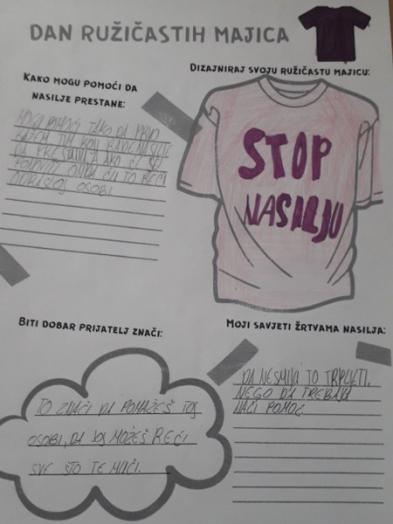 DAN RUŽIČASTIH MAJICA
KAKO MOGU POMOĆI DA
NASILJE PRESTANE:
MOGU POMOĆI TAKO DA PRVO
KAŽEM TIM KOJI RADE NASILJE
DA PRESTANU, A AKO SE
PONOVI ONDA ĆU TO REĆI
ODRASLOJ OSOBI.
DIZAJNIRAJ SVOJU RUŽIČASTU MAJICU:
STOP
NASILJU
BITI DOBAR PRIJATELJ ZNAČI:
TO ZNAČI DA POMAŽEŠ TOJ
OSOBI, DA JOJ MOŽEŠ REĆI
SVE ŠTO TE MUČI.
MOJI SAVJETI ŽRTVAMA NASILJA:
DA NESMIJU TO TRPLJETI,
NEGO DA TREBAJU
NAĆI POMOĆ